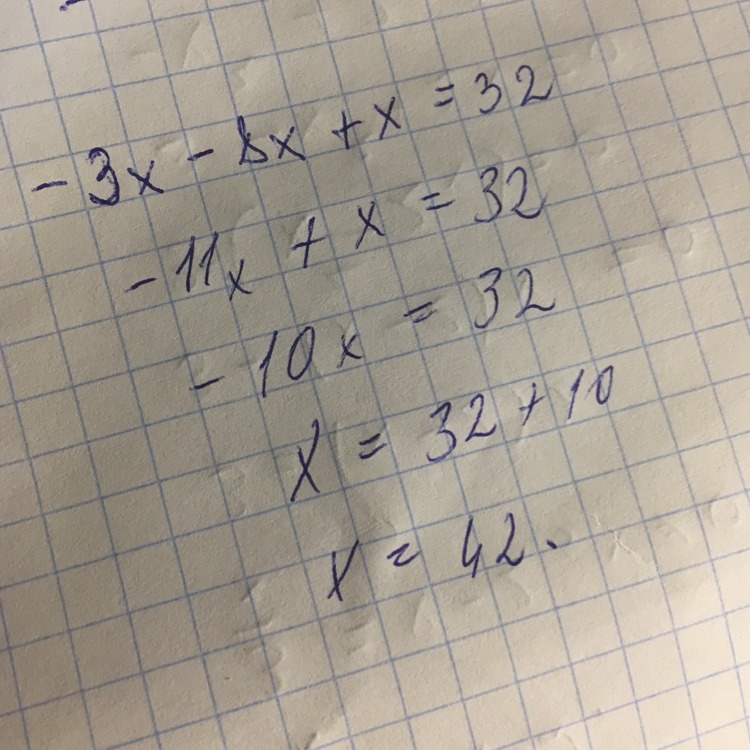 - 3x - 8x + x = 32
- 11x + x = 32
- 10x = 32
x = 32 + 10
x = 42.